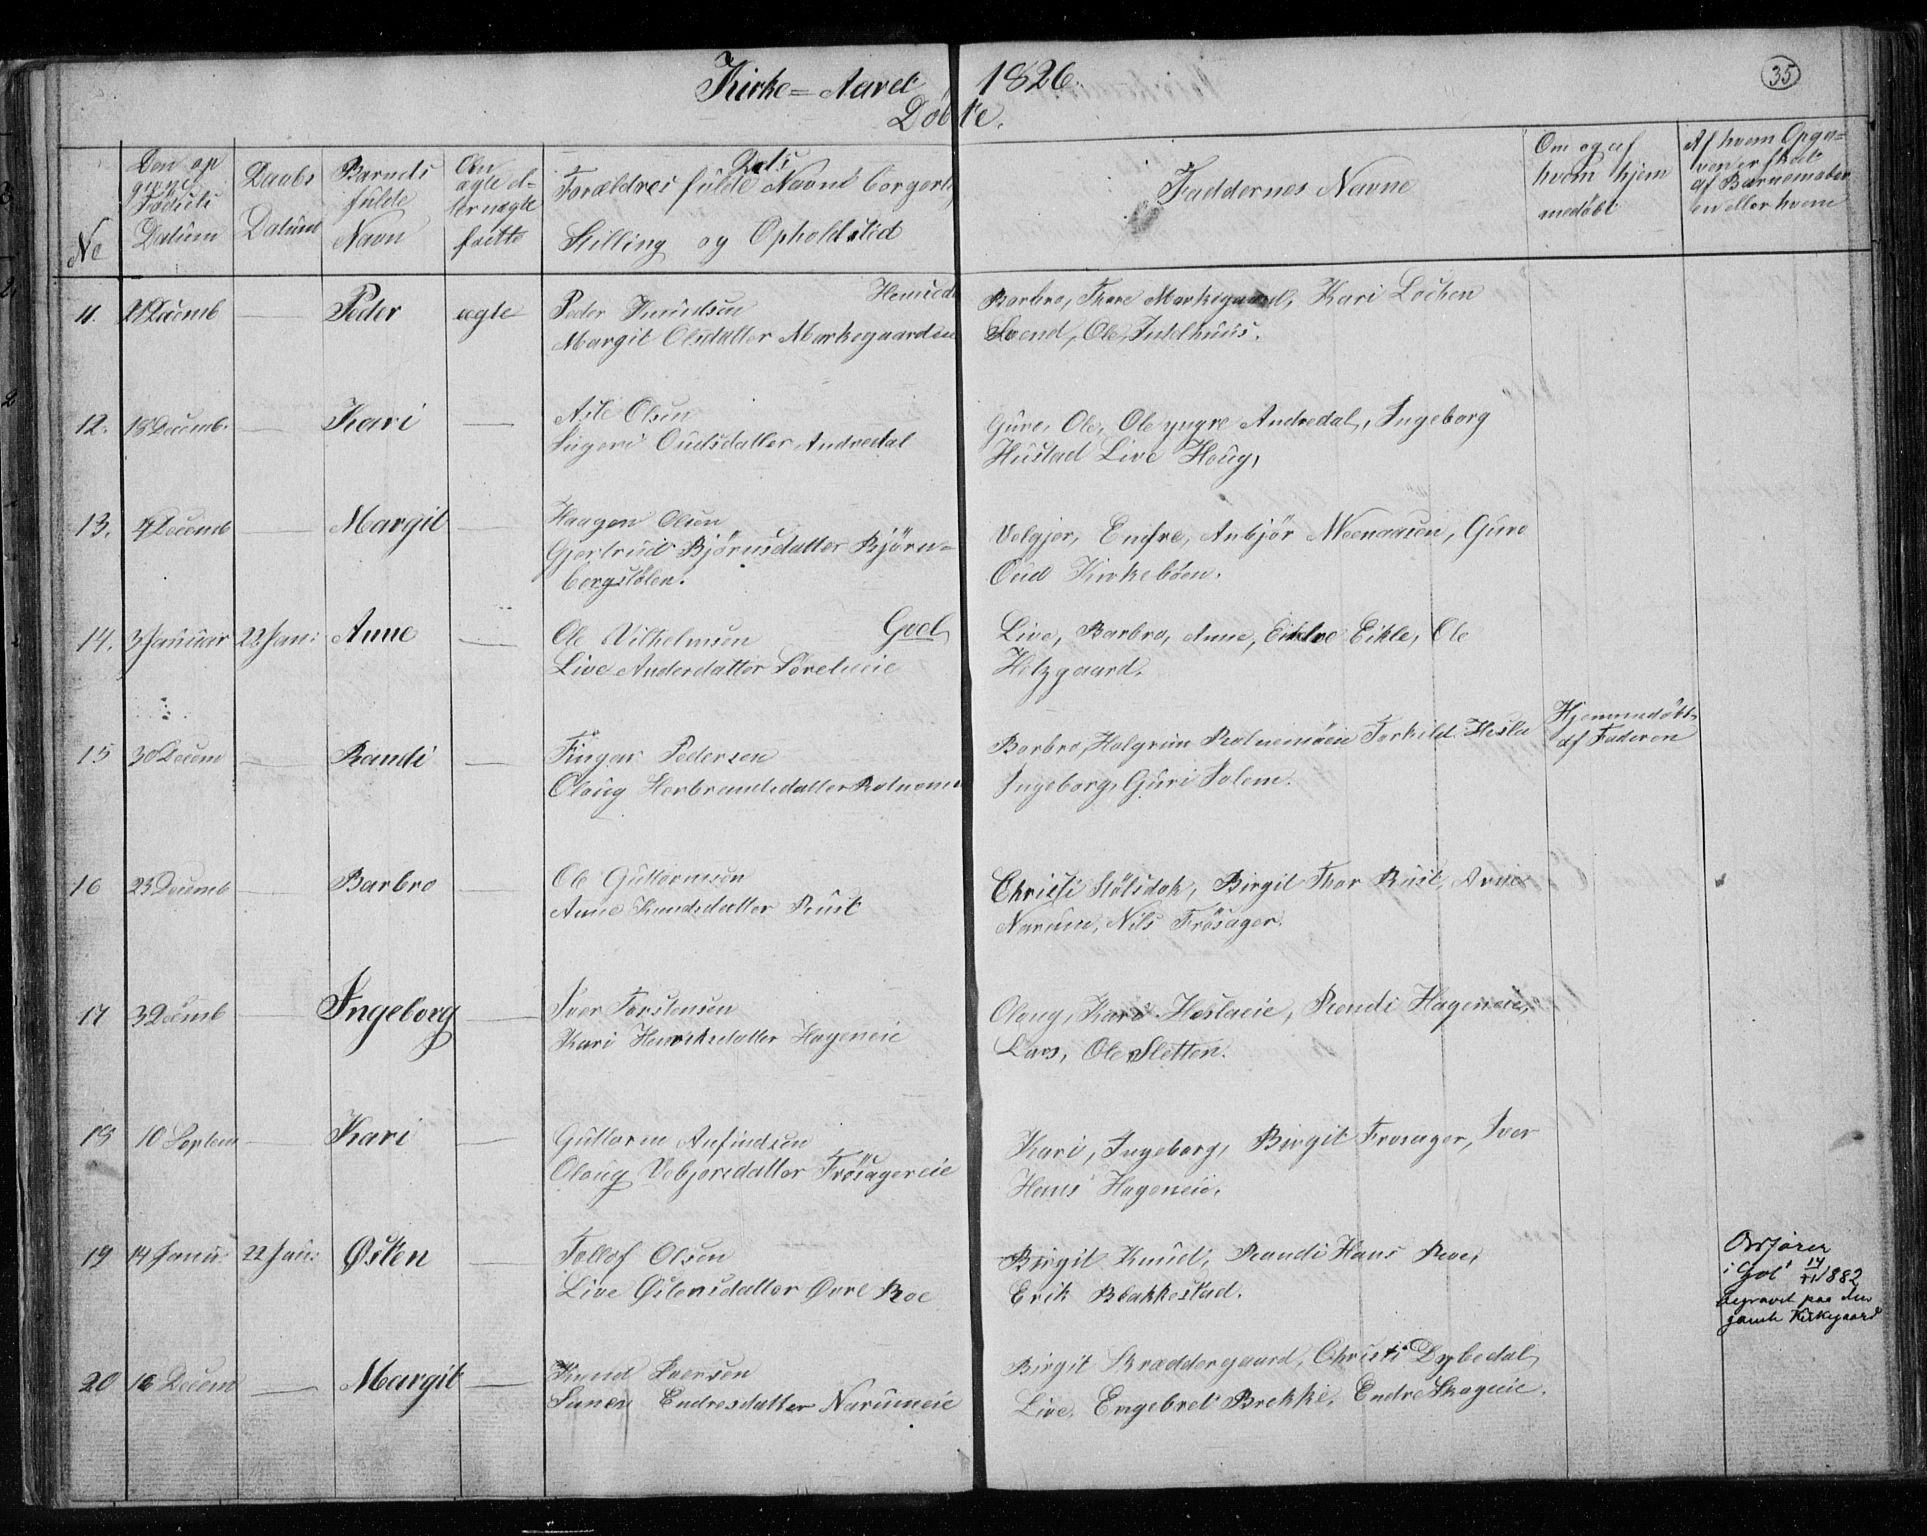 35
Kirke=Aaret 1826.
Døbte.
No
Den op
givne
Fødsels
Datum
Daabs
Datum
Barnets
fulde
Navn
Om
ægte el-
ler uægte
født
Forældres fulde Navne borgerl.
Stilling og Opholdsted
Faddernes Navne
Om og af
hvem hjem
medøbt
Af hvem Opga=
ven er skeet
af Barnemoder
en eller hvem
11. 21 Decemb — Peder ægte Peder Knudsen Hemsed
Margit Olsdatter Markegaarden
Barbro, Thore Markegaard, Kari Lochen
Svend, Ole,
12. 18 Decemb. — Kari — Asle Olsen
Andredal
Guro, Ole, Ole yngre Andredal, Ingeborg
Hustad Live Houg,
13. 4 Decemb — Margit — Haagen Olsen
Gjertrud Bjørnsdatter Bjørn=
bergstølen.
Endre, Anbjør Guro
Oud Kirkebøen.
14. 3 Januar 22 Jan: Anne — Ole Vilhelmsen Gool
Live Andersdatter
Live, Barbro, Anne, Eikle, Ole
15 30 Decem — Randi — Fingar Pedersen
Olaug Herbrandsdatter
Barbro, Halgrim Torkild Hesla
Ingeborg, Guri Solem.
Hjemmedøbt
af Faderen
16 23 Decemb — Barbro — Ole Guttormsen
Anne Knudsdatter Rust
Christi Birgit Thor Rust, Arne
Narum, Nils Frøsager.
17 3 Decemb — Ingeborg — Iver Torstensen
Kari Henriksdatter Hageneie
Olaug, Kari Heslaeie, Randi Hageneie,
Lars, Ole Sletten.
18 10 Septem — Kari — Guttorm Anfindsen
Olaug Frøsagereie
Kari, Ingeborg, Birgit Frøsager, Iver
Hans Hageneie.
19 14 Janu. 22 Jan: Østen — Tollof Olsen
Live Østensdatter Øvre Roe
Birgit Knud, Randi Hans Roe,
Erik Blakkestad.
i Gol 1882
begravet paa den
gamle Kirkegaard
20 16 Decem — Margit — Knud Iversen
Endresdatter Narumeie
Birgit Skræddergaard, Christi Dybedal
Live, Engebret Brekke, Endre Skageie.